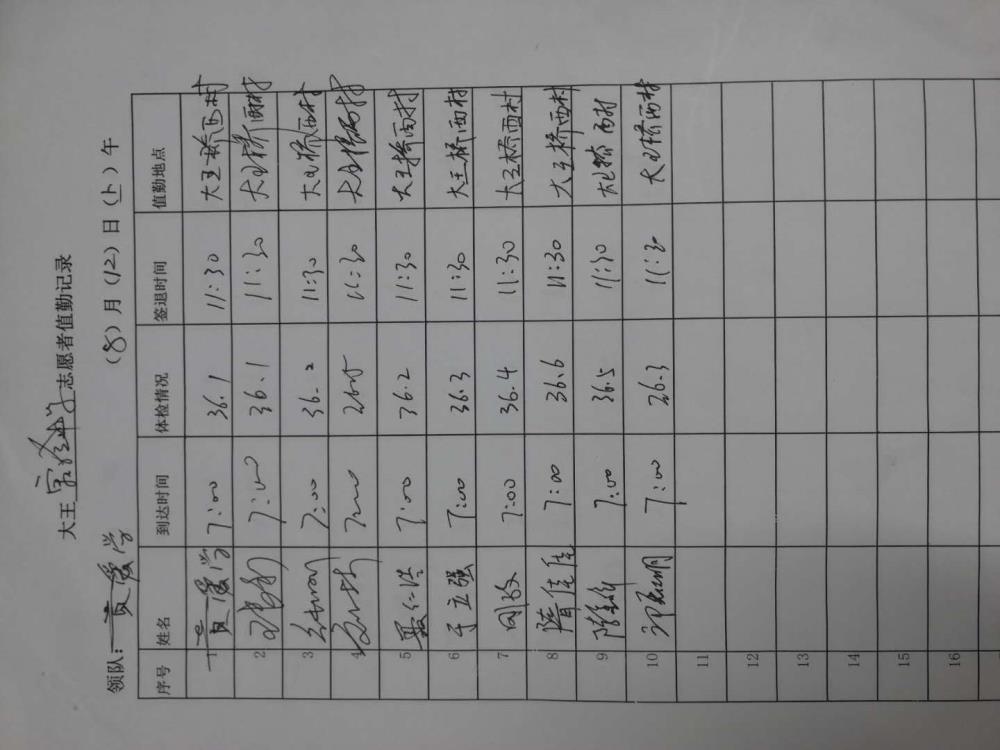 大王 志愿者值勤记录
领队: 爱学 (8)月(12)日(上)午
序号 姓名 到达时间 体检情况 签退时间 值勤地点
1 爱学 7:00 36.1 11:30 大王桥西村
2 7:00 36.1 11:30 大王桥西村
3 7:00 36.2 11:30 大王桥西村
4 7:00 11:30 大王桥西村
5 7:00 36.2 11:30 大王桥西村
6 于立强 7:00 36.3 11:30 大王桥西村
7 7:00 36.4 11:30 大王桥西村
8 隋佳佳 7:00 36.6 11:30 大王桥西村
9 7:00 36.5 11:30 大王桥西村
10 7:00 26.3 11:30 大王桥西村
11
12
13
14
15
16